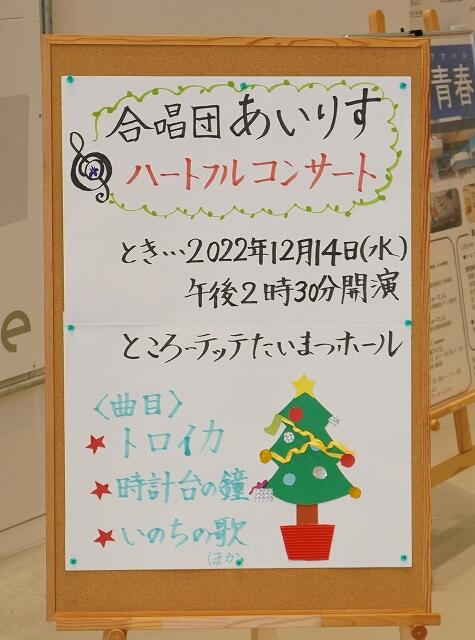 合唱団あいりす
ハートフルコンサート
とき…2022年12月14日(水)
午後2時30分開演
ところ…テッテたいまつホール
〈曲目〉
★トロイカ
★時計台の鐘
★いのちの歌
ほか
青春
e